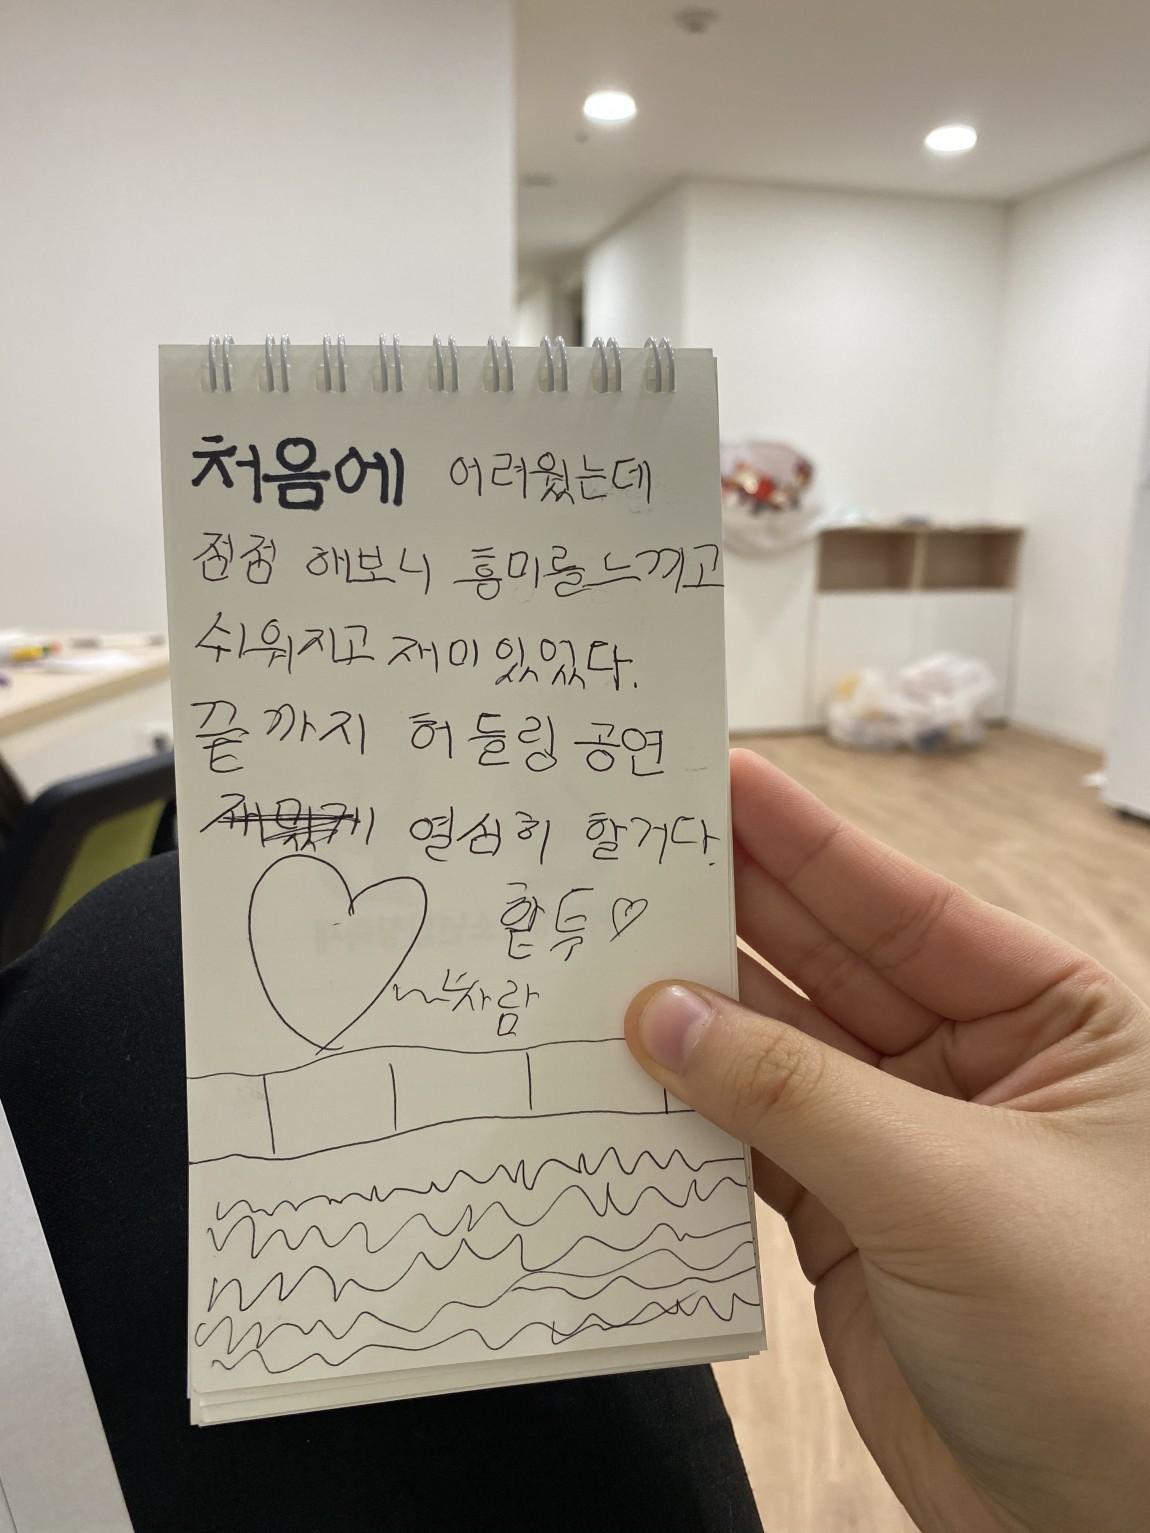 처음에 어려웠는데
점점 해보니 흥미를 느끼고
쉬워지고 재미있었다.
끝까지 허들링 공연
열심히 할거다.
홧투♡
차람